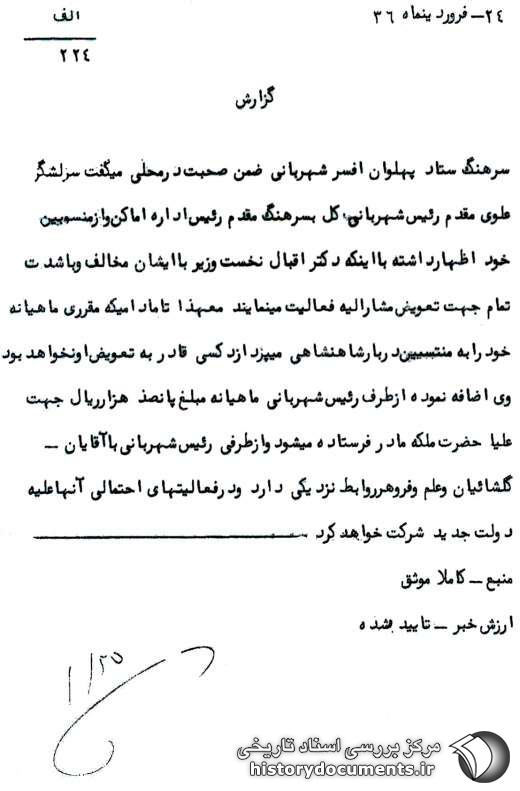 ۲٤ــ فرورد ینماه ۳۶
الف
۲۲٤
گزارش
سرهنگ ستاد پهلوان افسر شهربانی ضمن صحبت د رمحلی میگفت سرلشگر
علوی مقد م رئیس شهربانی کل بسرهنگ مقد م رئیس اد اره اماکن وازمنسوبین
خود اظهارد اشته بااینکه دکتر اقبال نخست وزیر باایشان مخالف وباشد ت
تمام جهت تعویض مشارالیه فعالیت مینمایند معهذا تاماد امیکه مقرری ماهیانه
خود رابه منتسبین د ربارشاهنشاهی میپرد ازد کسی قاد ر به تعویض اونخواهد بود
وی اضافه نمود ه ازطرف رئیس شهربانی ماهیانه مبلغ پانصد هزارریال جهت
علیا حضرت ملکه ماد ر فرستاد ه میشود وازطرفی رئیس شهربانی باآقایان ــ
گلشائیان وعلم وفروهرروابط نزد یکی د ارد ود رفعالیتهای احتمالی آنهاعلیه
د ولت جد ید شرکت خواهد کرد
منبع ــ کاملا موثق
ارزش خبر ــ تایید شد ه
۱/۲۵
مرکز بررسی اسناد تاریخی
historydocuments.ir